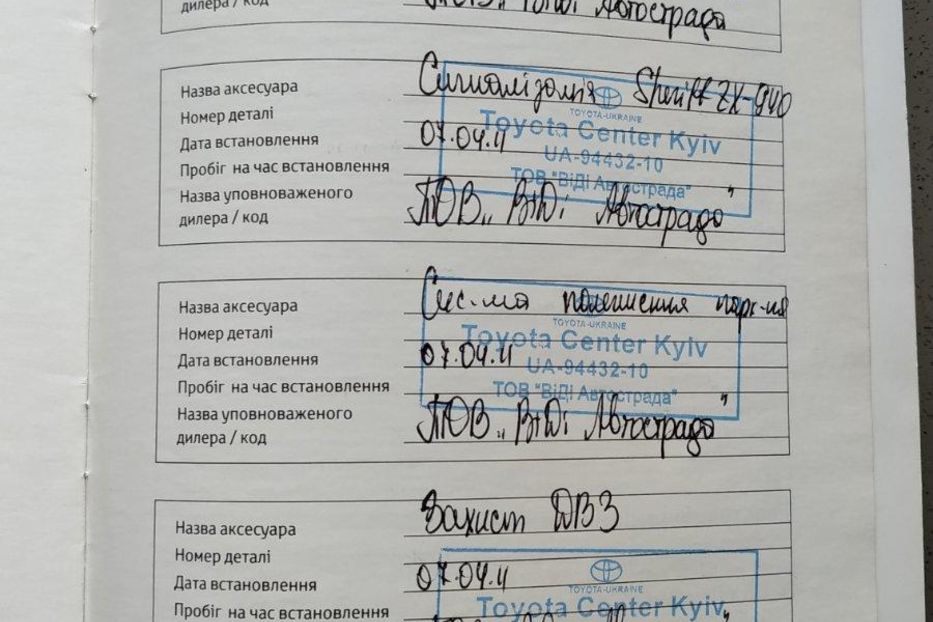 дилера / код
ТОВ „ ВіДі Автострада
Назва аксесуара Сигналізація Sheriff ZX-940
Номер деталі
TOYOTA-UKRAINE
Toyota Center Kyiv
Дата встановлення 07.04.11
UA-94432-10
Пробіг на час встановлення
ТОВ "ВіДі Автострада"
Назва уповноваженого
дилера / код ТОВ „ ВіДі Автострада"
Назва аксесуара Сис-ма полегшення парк-ня
Номер деталі
TOYOTA-UKRAINE
Toyota Center Kyiv
Дата встановлення 07.04.11
UA-94432-10
Пробіг на час встановлення
ТОВ "ВіДі Автострада"
Назва уповноваженого
дилера / код ТОВ „ ВіДі Автострада"
Назва аксесуара Захист ДВЗ
Номер деталі
Дата встановлення 07.04.11
TOYOTA-UKRAINE
Пробіг на час встановлення
Toyota Center Kyiv